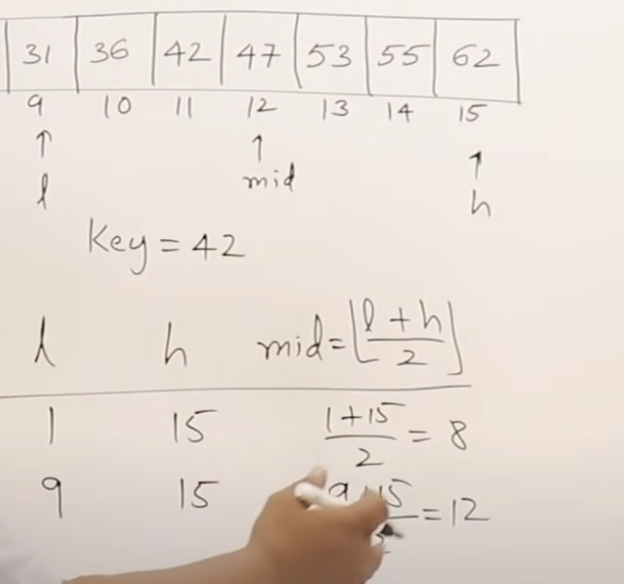 31 36 42 47 53 55 62
9 10 11 12 13 14 15
↑ ↑ ↑
l mid h
Key = 42
l h mid = ⌊(l + h)/2⌋
1 15 (1+15)/2 = 8
9 15 9+15 = 12